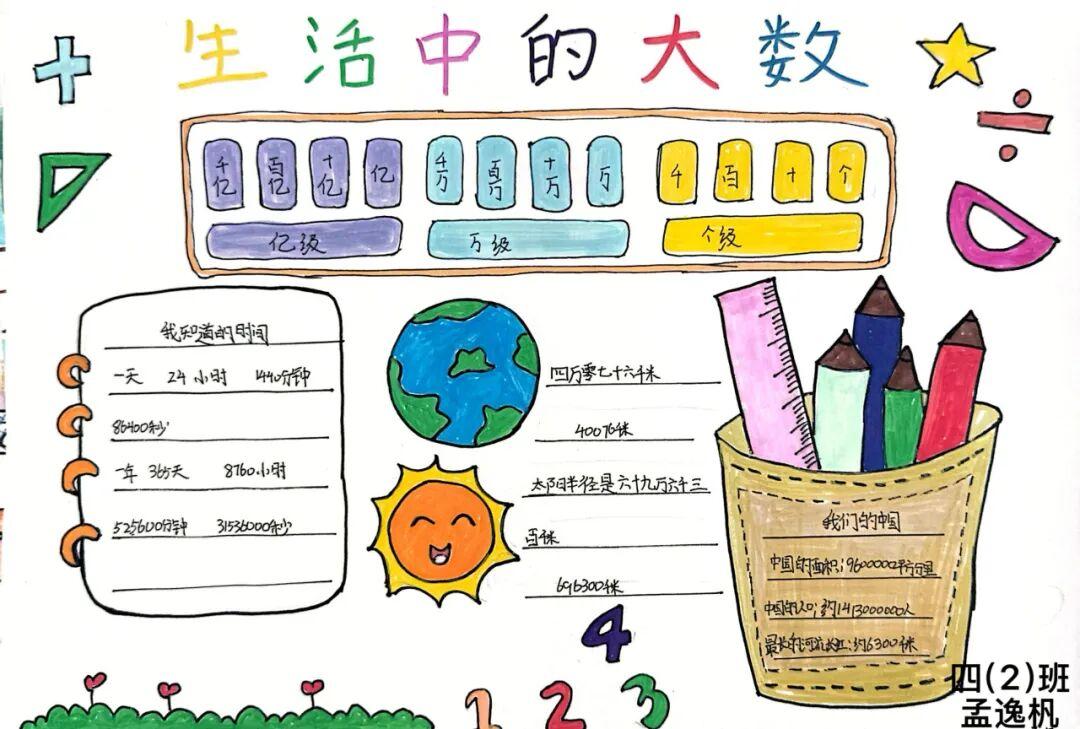 生活中的大数
千亿 百亿 十亿 亿 千万 百万 十万 万 千 百 十 个
亿级 万级 个级
我知道的时间
一天 24小时 1440分钟
86400秒
一年 365天 8760小时
525600分钟 31536000秒
四万零七十六千米
40076千米
太阳半径是六十九万六千三
百千米
696300千米
我们的中国
中国的面积:9600000平方公里
中国的人口:约1413000000人
最长的河流长江:约6300千米
1 2 3 4
四(2)班
孟逸帆